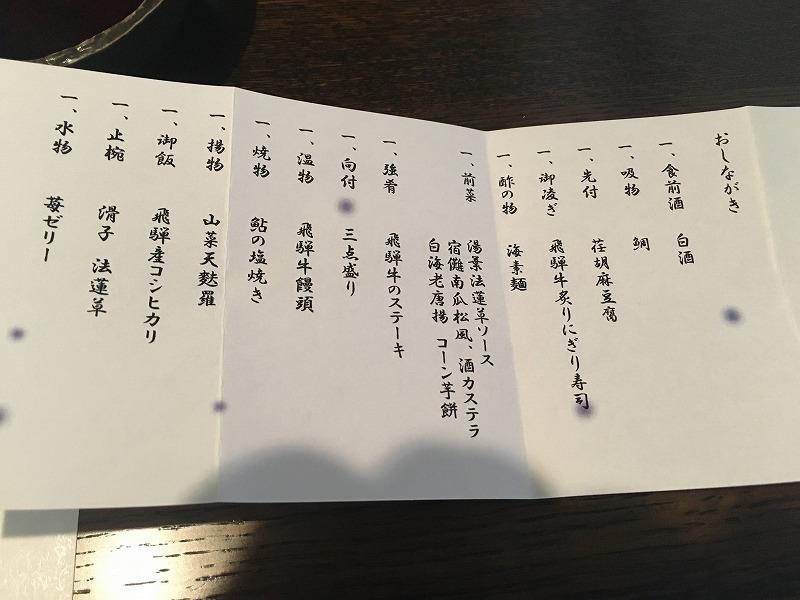 おしながき
一、食前酒　白酒
一、吸物　鯛
一、先付　荏胡麻豆腐
一、御凌ぎ　飛騨牛炙りにぎり寿司
一、酢の物　海素麺
一、前菜　湯葉法蓮草ソース
宿儺南瓜松風、酒カステラ
白海老唐揚　コーン芋餅
一、強肴　飛騨牛のステーキ
一、向付　三点盛り
一、温物　飛騨牛饅頭
一、焼物　鮎の塩焼き
一、揚物　山菜天麩羅
一、御飯　飛騨産コシヒカリ
一、止椀　滑子　法蓮草
一、水物　苺ゼリー